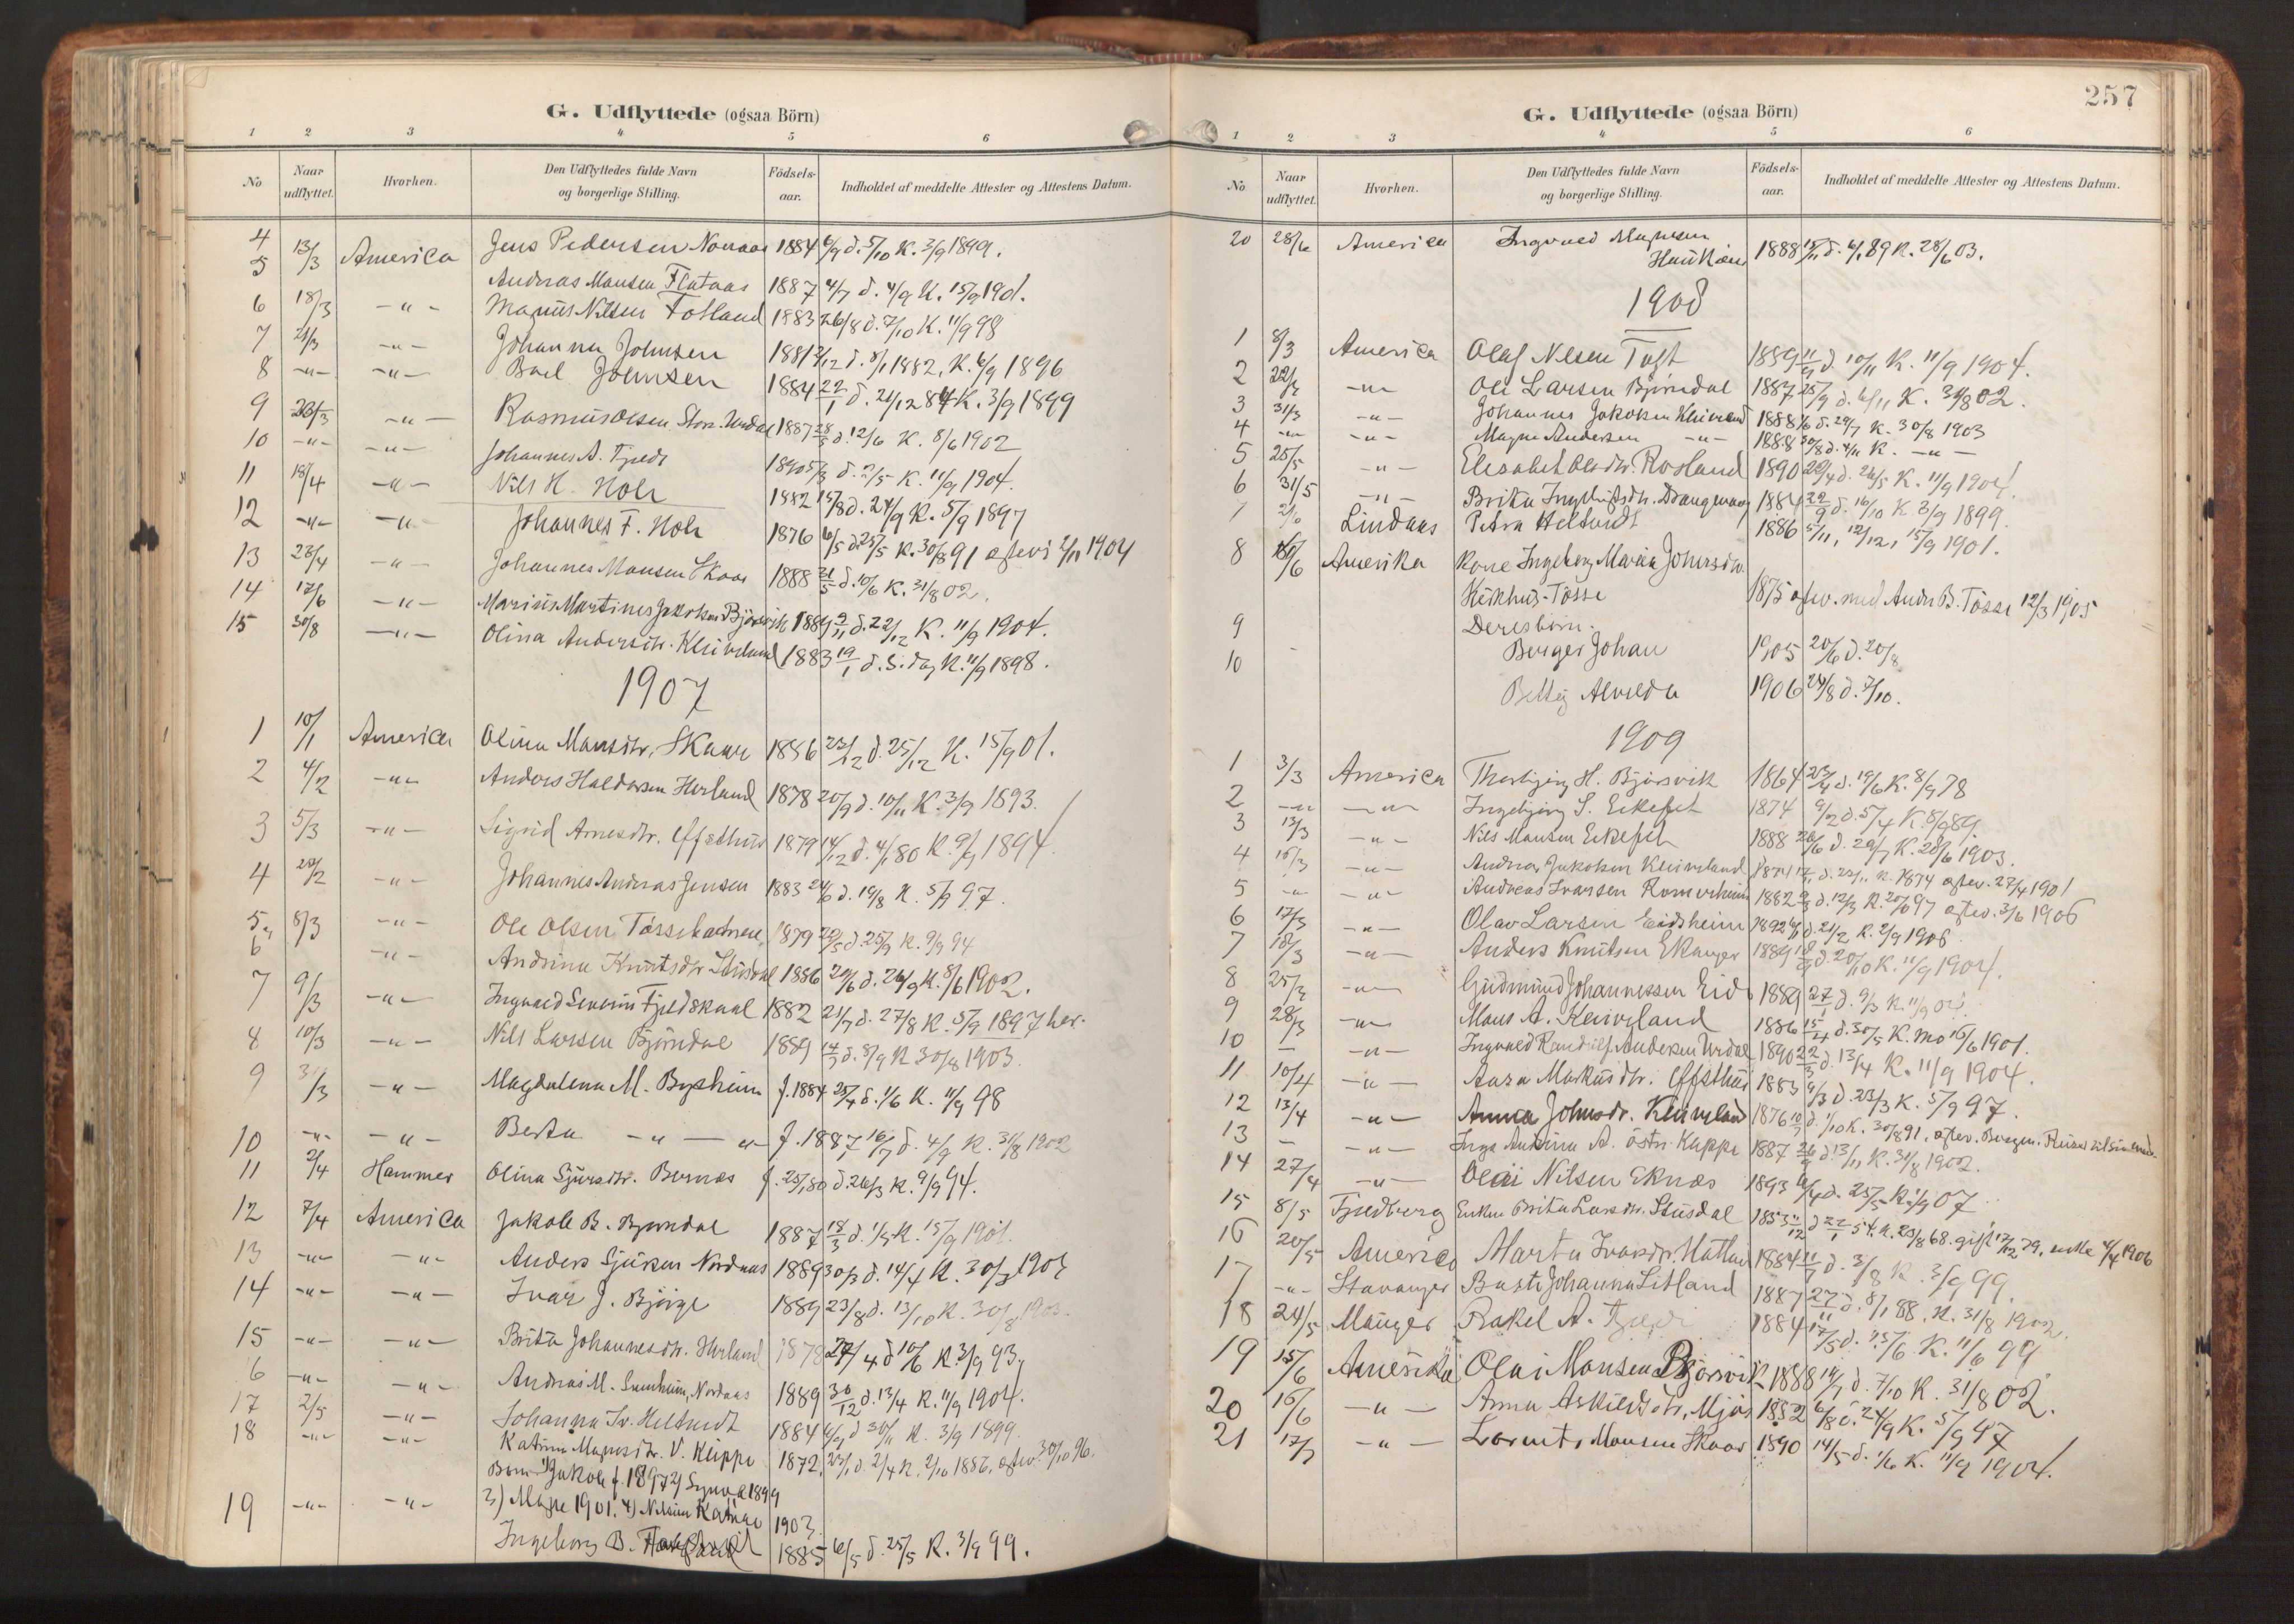 257
G. Udflyttede (ogsaa Börn)
1 2 3 4 5 6
No Naar udflyttet. Hvorhen. Den Udflyttedes fulde Navn og borgerlige Stilling. Födsels-aar. Indholdet af meddelte Attester og Attestens Datum.
4 13/3 America Jens Pedersen 1884 6/9 d. 5/10 K. 3/9 1899.
5 Andreas Monsen Flataas 1887 4/7 d. 4/9 K. 15/9 1901.
6 18/3 -"- Magnus Nilsen Fotland 1883 26/8 d. 7/10 K. 11/9 98
7 21/3 -"- Johanna Johnsen 1881 d. 8/1 1882, K. 6/9 1896
8 -"- -"- Johnsen 1884 22/1 d. 21/12 84 K. 3/9 1899
9 23/3 -"- Rasmus Olsen Stor. Urdal 1887 28/5 d. 12/6 K. 8/6 1902
10 -"- -"- Johannes A. 1890 5/3 d. 2/5 K. 11/9 1904.
11 18/4 -"- Nils H. Hole 1882 15/8 d. 24/9 K. 5/9 1897
12 -"- -"- Johannes F. Hole 1876 6/5 d. 25/5 K. 30/8 91 1904
13 23/4 -"- Johannes Monsen Skaar 1888 21/5 d. 10/6 K. 31/8 02.
14 17/6 -"- Marius Martines Jakobsen Björsvik 1889 9/11 d. 22/12 K. 11/9 1904.
15 30/8 -"- Olina Andersdtr. Kleiveland 1883 19/1 d. s. dag K. 11/9 1898.
1907
1 10/1 America Olina Monsdtr. Skaar 1886 23/12 d. 25/12 K. 15/9 01.
2 4/2 -"- Anders Haldorsen Herland 1878 20/9 d. 10/11 K. 3/9 1893.
3 5/3 -"- Sigrid Arnesdtr. 1879 14/12 d. 4/1 80 K. 9/9 1894.
4 28/2 -"- Johannes Andreas Jensen 1883 24/6 d. 19/8 K. 5/9 97.
5 8/3 -"- Ole Olsen 1879 d. 25/9 K. 9/9 94
6 -"- Andrina Knutsdtr. Stusdal 1886 20/6 d. 26/9 K. 8/6 1902.
7 9/3 -"- Ingvald Severin Fjeldskaal 1882 21/7 d. 27/8 K. 5/9 1897 her.
8 10/3 -"- Nils Larsen Björndal 1889 14/7 d. 8/9 K. 30/8 1903.
9 3/3 -"- Magdalena M. Bysheim f. 1884 25/4 d. 1/6 K. 11/9 98
10 -"- -"- Berta -"- -"- f. 1887 16/7 d. 4/9 K. 31/8 1902
11 2/4 Hammer Olina Sjursdtr. Bernes f. 25/1 80 d. 26/3 K. 9/9 94.
12 7/4 America Jakob B. Bjørndal 1887 18/3 d. 1/5 K. 15/9 1901.
13 -"- -"- Anders Sjursen Nordaas 1889 30/3 d. 14/4 K. 30/8 1903
14 -"- -"- Ivar J. Björge 1889 23/8 d. 13/10 K. 30/8 1903.
15 -"- -"- Brita Johannesdtr. Herland 1878 27/4 d. 10/6 K. 3/9 93.
6 -"- -"- Andreas M. Nordaas 1889 30/12 d. 13/4 K. 11/9 1904.
17 2/5 -"- Johanna Iv. Heltvedt 1884 d. 30/11 K. 3/9 1899.
18 -"- -"- Katrina Magnesdtr. V. Keippe 1872, d. 2/4 K. 2/10 1886, 30/10 96.
Börn: 1) Jakob f. 1897 2) 1899
3) 1901. 4) 1903.
19 -"- -"- Ingeborg B. 1885 6/5 d. 25/5 K. 3/9 99.
G. Udflyttede (ogsaa Börn)
1 2 3 4 5 6
No Naar udflyttet. Hvorhen. Den Udflyttedes fulde Navn og borgerlige Stilling. Födsels-aar. Indholdet af meddelte Attester og Attestens Datum.
20 28/6 America Ingvald Magnesen
Haukaas 1888 15/11 d. 6/1 89 K. 28/6 03.
1908
1 8/3 America Olaf Nilsen Toft 1889 11/9 d. 10/11 K. 11/9 1904.
2 22/3 -"- Ole Larsen Björndal 1887 25/9 d. 6/11 K. 31/8 02.
3 31/3 -"- Johannes Jakobsen Kleiveland 1888 d. 29/7 K. 30/8 1903
4 -"- -"- Magne Andersen -"- 1888 30/8 d. 4/11 K. -"-
5 25/5 -"- Elisabet Olsdtr. Rosland 1890 20/4 d. 26/5 K. 11/9 1904.
6 31/5 -"- Brita 1884 22/9 d. 16/10 K. 3/9 1899.
7 Lindaas Petra Heltvedt 1886 5/11, 12/12, 15/9 1901.
8 16/6 Amerika Kone Ingeborg Maria
Tösse 1875 med Andr. B. Tösse 12/3 1905
Deres börn.
9 Berger Johan 1905 20/6 d. 20/8
10 Betty Alvilda 1906 24/8 d. 7/10.
1909
1 3/3 America H. Björsvik 1864 23/4 d. 19/6 K. 8/9 78
2 -"- -"- Ingebjörg S. Eikefet 1874 9/2 d. 5/4 K. 8/9 89
3 13/3 -"- Nils Monsen Eikefet 1888 26/6 d. 29/7 K. 28/6 1903.
4 15/3 -"- Andreas Jakobsen Kleiveland 27/4 1901
5 -"- -"- Andreas Ivarsen Romarheim 1882 d. 12/3 K. 20/6 97 3/6 1906
6 17/3 -"- Olav Larsen Eidsheim 1892 d. 21/2 K. 2/9 1906.
7 18/3 -"- Anders Knutsen Ekanger 1889 d. 20/10 K. 11/9 1904.
8 25/3 -"- Gudmund Johannessen Eide 1889 27/1 d. 9/3 K. 11/9 04.
9 28/3 -"- Mons A. Kleiveland 1886 15/4 d. 30/5 K. 16/6 1901.
10 - -"- Ingvald Andersen Urdal 1890 22/3 d. 13/4 K. 11/9 1904.
11 10/4 -"- Markusdtr. 1883 4/3 d. 23/3 K. 5/9 97.
12 13/4 -"- Anna Johnsdr. Kleiveland 1876 10/7 d. 1/10 K. 30/8 91, Bergen.
13 - -"- A. östre Kleppe 1887 d. 13/11 K. 31/8 1902.
14 27/4 -"- Olai Nilsen Eknæs 1893 4/4 d. 25/5 K. 07.
15 8/5 Fjeldberg Enken Brita Larsdtr. Stusdal 1853 11/12 d. 22/1 54. K. 23/8 68. gift 17/12 79, enke 4/4 1906
16 20/5 America Marta Ivarsdr. Matland 1884 11/7 d. 3/8 K. 3/9 99.
17 -"- Stavanger Johanna Litland 1887 27/11 d. 8/1 88. K. 31/8 1902.
18 24/5 Manger Rakel A. 1884 17/5 d. 15/6 K. 11/6 99
19 15/6 Amerika Olai Monsen Björsvik 1888 14/7 d. 7/10 K. 31/8 02.
20 16/6 -"- Anna Askildsdtr. Mjøs 1882 6/8 d. 24/9 K. 5/9 97
21 17/7 -"- Laurits Monsen Skaar 1890 14/5 d. 1/6 K. 11/9 1904.